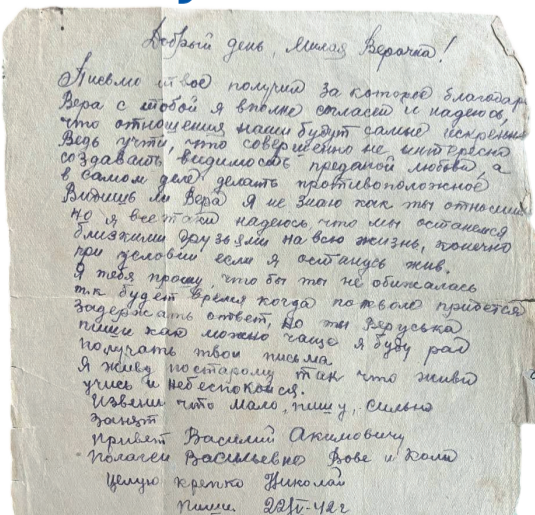 Добрый день, милая Верочка!
Письмо твое получил за которое благодар
Вера с тобой я вполне согласен и надеюсь,
что отношения наши будут самые искренние
Ведь учти, что совершенно не интересно
создавать видимость преданой любви, а
в самом деле, делать противоположное
Видишь ли Вера я не знаю как ты
но я все таки надеюсь что мы останемся
близкими друзьями на всю жизнь, конечно
при условии если я останусь жив.
Я тебя прошу, что бы ты не обижалась
т.к будет время когда придется
задержать ответ, но ты Веруська
пиши как можно чаще я буду рад
получать твои письма
Я живу постарому так что живи
учись и небеспокойся.
Извени что мало, пишу, сильно
занят
Привет Василий Акимовичу
Полагеи Васильевно Вове и Коли
Целую крепко Николай
пиши. 42г